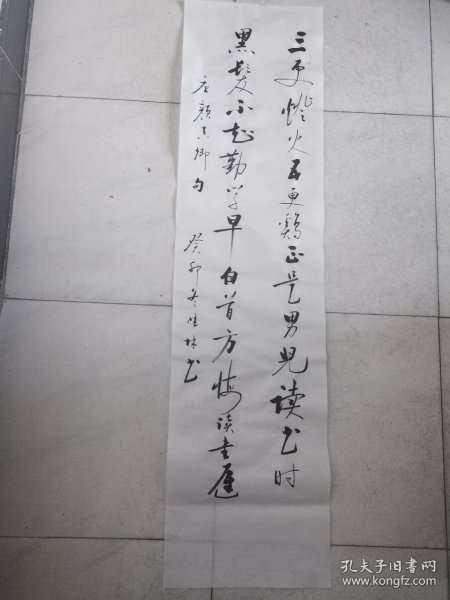 三更燈火五更鷄正是男兒读书时
黑髮不知勤学早白首方悔读書遲
唐颜真卿句 癸卯冬 林书
孔夫子旧书网
www.kongfz.com